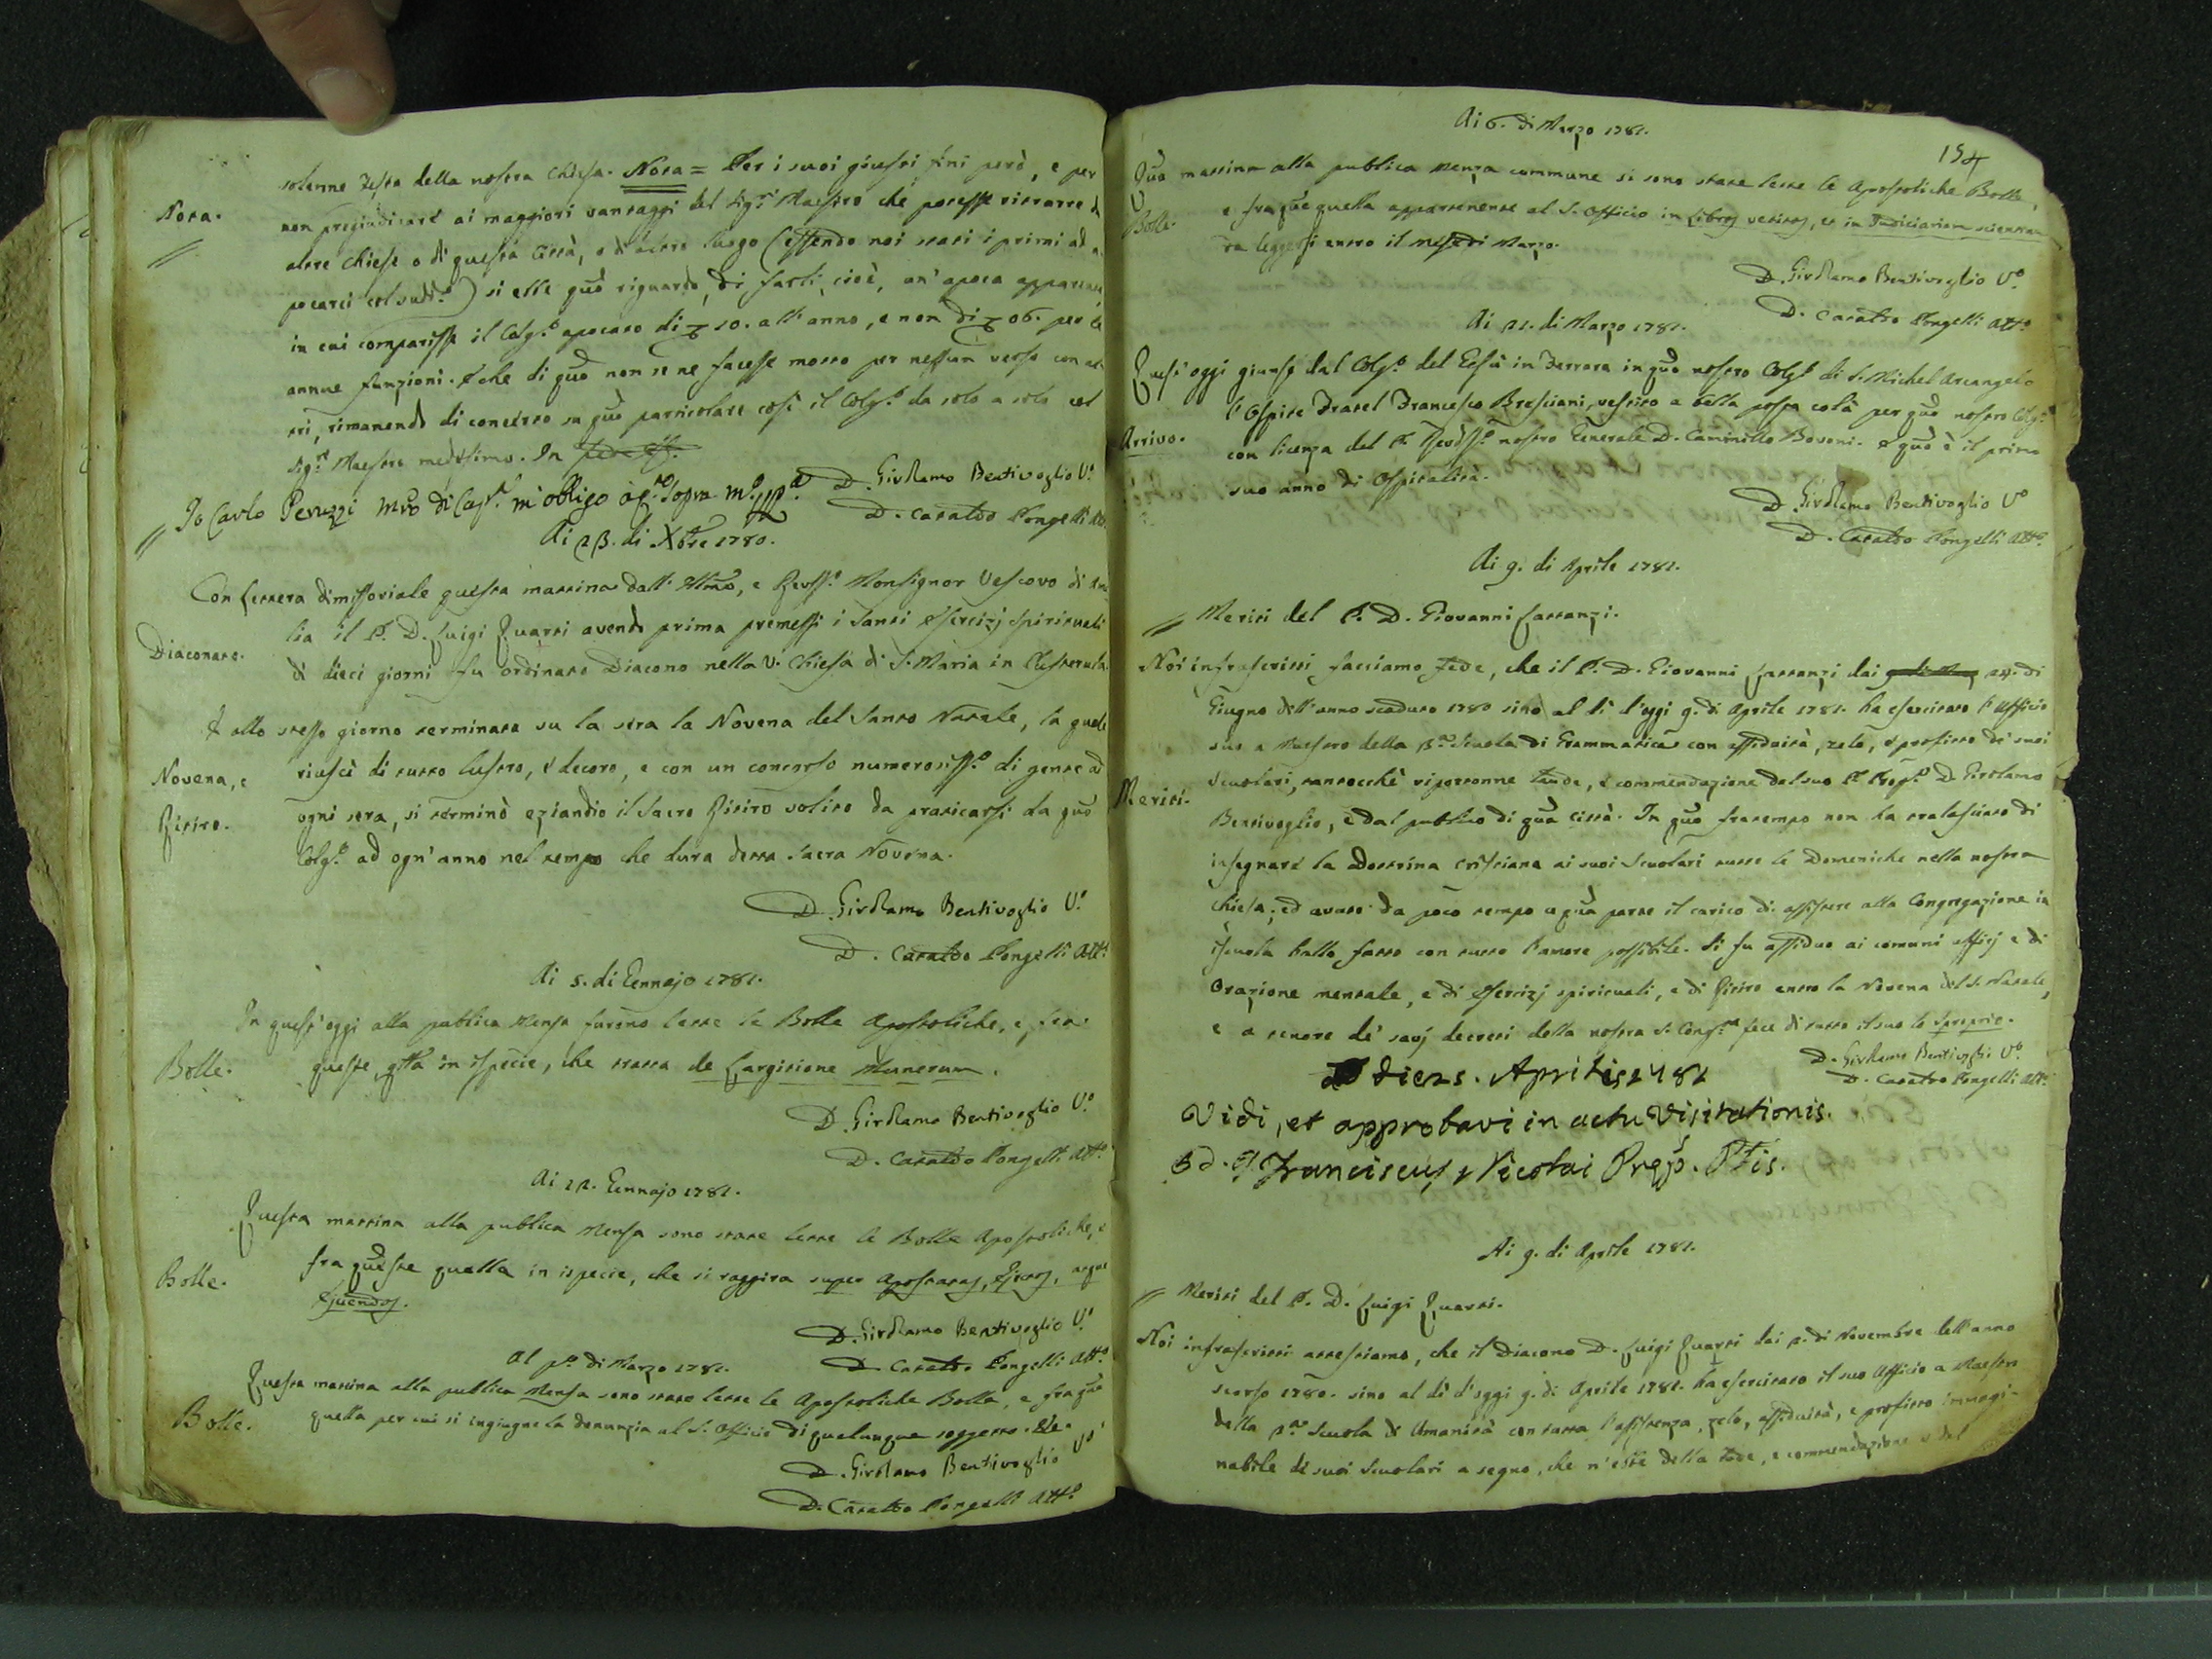 solenne Festa della nostra Chiesa. Nota = Per i suoi giusti fini però, e per
Nota.
non pregiudicare ai maggiori vantaggi del Sig.r Maestro che potesse ritrarre da
altre Chiese o di questa Città, o d'altro luogo (essendo noi stati i primi ad a
pocarci col sudd.o) si elle quõ riguardo, di farli, cioè, un'apoca apparente,
in cui comparisse il Colg.o apocato di 10. all'anno, e non di 06. per le
annue funzioni. E che di quõ non se ne facesse motto per nessun verso con al
tri, rimanendo di concerto su quõ particolare così il Colg.o da solo a solo col
Sig.r Maestro medesimo. In fede
Io Carlo Peruzzi mro di Cap.a m'obbligo a q.to Sopra m.o pp.a
D. Girolamo Bentivoglio V.o
D. Cataldo Pongelli Att.o
Ai 23. di Xbre 1780.
Con lettera dimissoriale questa mattina dall' Illmo, e Revss.o Monsignor Vescovo di
Diaconato.
lia il P. D. Luigi Quarti avendo prima premessi i Santi Esercizj Spirituali
di dieci giorni fu ordinato Diacono nella V. Chiesa di S. Maria in
E allo stesso giorno terminata su la sera la Novena del Santo Natale, la quale
Novena, e
Ritiro.
riuscì di tutto lustro, e decoro, e con un concorso numerosiss.o di gente ad
ogni sera, si terminò eziandio il Sacro Ritiro solito da praticarsi da quõ
Colg.o ad ogn'anno nel tempo che dura detta Sacra Novena.
D. Girolamo Bentivoglio V.o
D. Cataldo Pongelli Att.o
Ai 5. di Gennajo 1781.
In quest'oggi alla publica Mensa furono lette le Bolle Apostoliche, e fra
Bolle.
queste qlla in ispecie, che tratta de Largitione Munerum.
D. Girolamo Bentivoglio V.o
D. Cataldo Pongelli Att.o
Ai 12. Gennajo 1781.
Questa mattina alla publica Mensa sono state lette le Bolle Apostoliche, e
Bolle.
fra queste quella in ispecie, che si raggira super Apostatas, Ejectos, atque
Ejiciendos.
D. Girolamo Bentivoglio V.o
D. Cataldo Pongelli Att.o
Al p.o di Marzo 1781.
Questa mattina alla publica Mensa sono state lette le Apostoliche Bolle, e fra que
Bolle.
quella per cui si ingiugne la denunzia al S. Officio di qualunque soggetto
D. Girolamo Bentivoglio V.o
D. Cataldo Pongelli Att.o
154
Ai 6. di Marzo 1781.
Quõ mattina alla publica Menza commune si sono state lette le Apostoliche Bolle,
Bolle.
e fra que quella appartenente al S. Officio in Libros vetitos, et in Judiciariam scientiam
da leggersi entro il mese di Marzo.
D. Girolamo Bentivoglio V.o
D. Cataldo Pongelli Att.o
Ai 21. di Marzo 1781.
Quest'oggi giunse dal Colg.o del Gesù in Ferrara in quõ nostro Colg.o di S. Michel Arcangelo
l'Ospite Fratel Francesco Bresciani, vestito a bella posta colà per quõ nostro Colg.o
Arrivo.
con licenza del P. Revdss.o nostro Generale D. Camnillo Bovoni. e quõ è il primo
suo anno di Ospitalità.
D. Girolamo Bentivoglio V.o
D. Cataldo Pongelli Att.o
Ai 9. di Aprile 1781.
Meriti del P. D. Giovanni Lattanzi.
Noi infrascritti facciamo fede, che il P. D. Giovanni Lattanzi dai 24. di
Giugno dell'anno scaduto 1780 sino al dì d'oggi 9. di Aprile 1781. ha esercitato l'Uffizio
suo a Maestro della 3.a Scuola di Grammatica con assiduità, zelo, e profitto de' suoi
Scuolari, tantocchè riportonne laude, e commendazione dal suo P. Prop.o D. Girolamo
Meriti.
Bentivoglio, e dal publico di quã città. In quõ frattempo non ha tralasciato di
insegnare la Dottrina Cristiana ai suoi Scuolari tutte le Domeniche nella nostra
Chiesa; ed avuto da poco tempo a quã parte il carico di assistere alla Congregazione in
iscuola hallo fatto con tutto l'amore possibile. Si fu assiduo ai comuni uffizj e di
Orazione mentale, e di Esercizj spirituali, e di Ritiro entro la Novena del S. Natale,
e a tenore de' savj decreti della nostra S. Cong.ne fece di tutto il suo lo Sproprio.
D. Girolamo Bentivoglio V.o
D. Cataldo Pongelli Att.o
die 25. Aprilis 1781
Vidi, et approbavi in actu Visitationis.
Franciscus Nicolai Prep. Ptis.
Ai 9. di Aprile 1781.
Meriti del P. D. Luigi Quarti.
Noi infrascritti attestiamo, che il Diacono D. Luigi Quarti dai 2. di Novembre dell'anno
scorso 1780. sino al dì d'oggi 9. di Aprile 1781. ha esercitato il suo Ufficio a Maestro
della 2.a Scuola di Umanità con tutta l'assistenza, zelo, assiduità, e profitto immagi-
nabile de' suoi Scuolari a segno, che n'ebbe della lode, e commendazione e dal